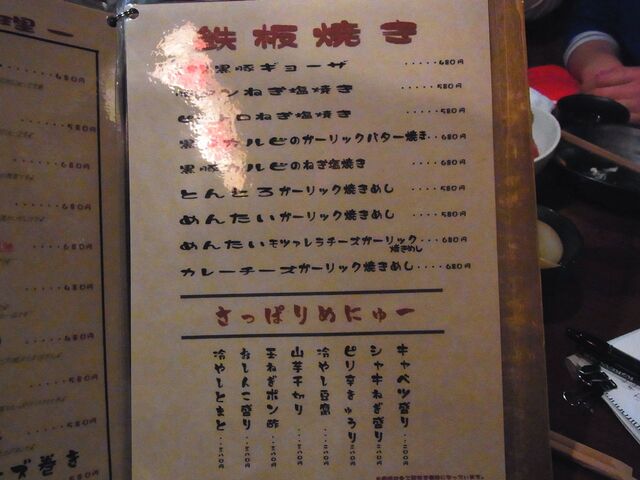 理一
680円
580円
680円
680円
580円
680円
580円
ズ巻き
580円
鉄板焼き
黒豚ギョーザ・・・680円
ンねぎ塩焼き・・・580円
トロねぎ塩焼き・・・580円
黒 カルビのガーリックバター焼き・・680円
黒豚カルビのねぎ塩焼き・・・680円
とんとろガーリック焼きめし・・・580円
めんたいガーリック焼きめし・・・580円
めんたいモツァレラチーズガーリック焼きめし・・・680円
カレーチーズガーリック焼きめし・・・・680円
さっぱりめにゅー
キャベツ盛り
シャキねぎ盛り
ピリ辛きゅうり
冷やし豆腐
山芋千切り
玉ねぎポン酢
おしんこ盛り
冷やしとまと